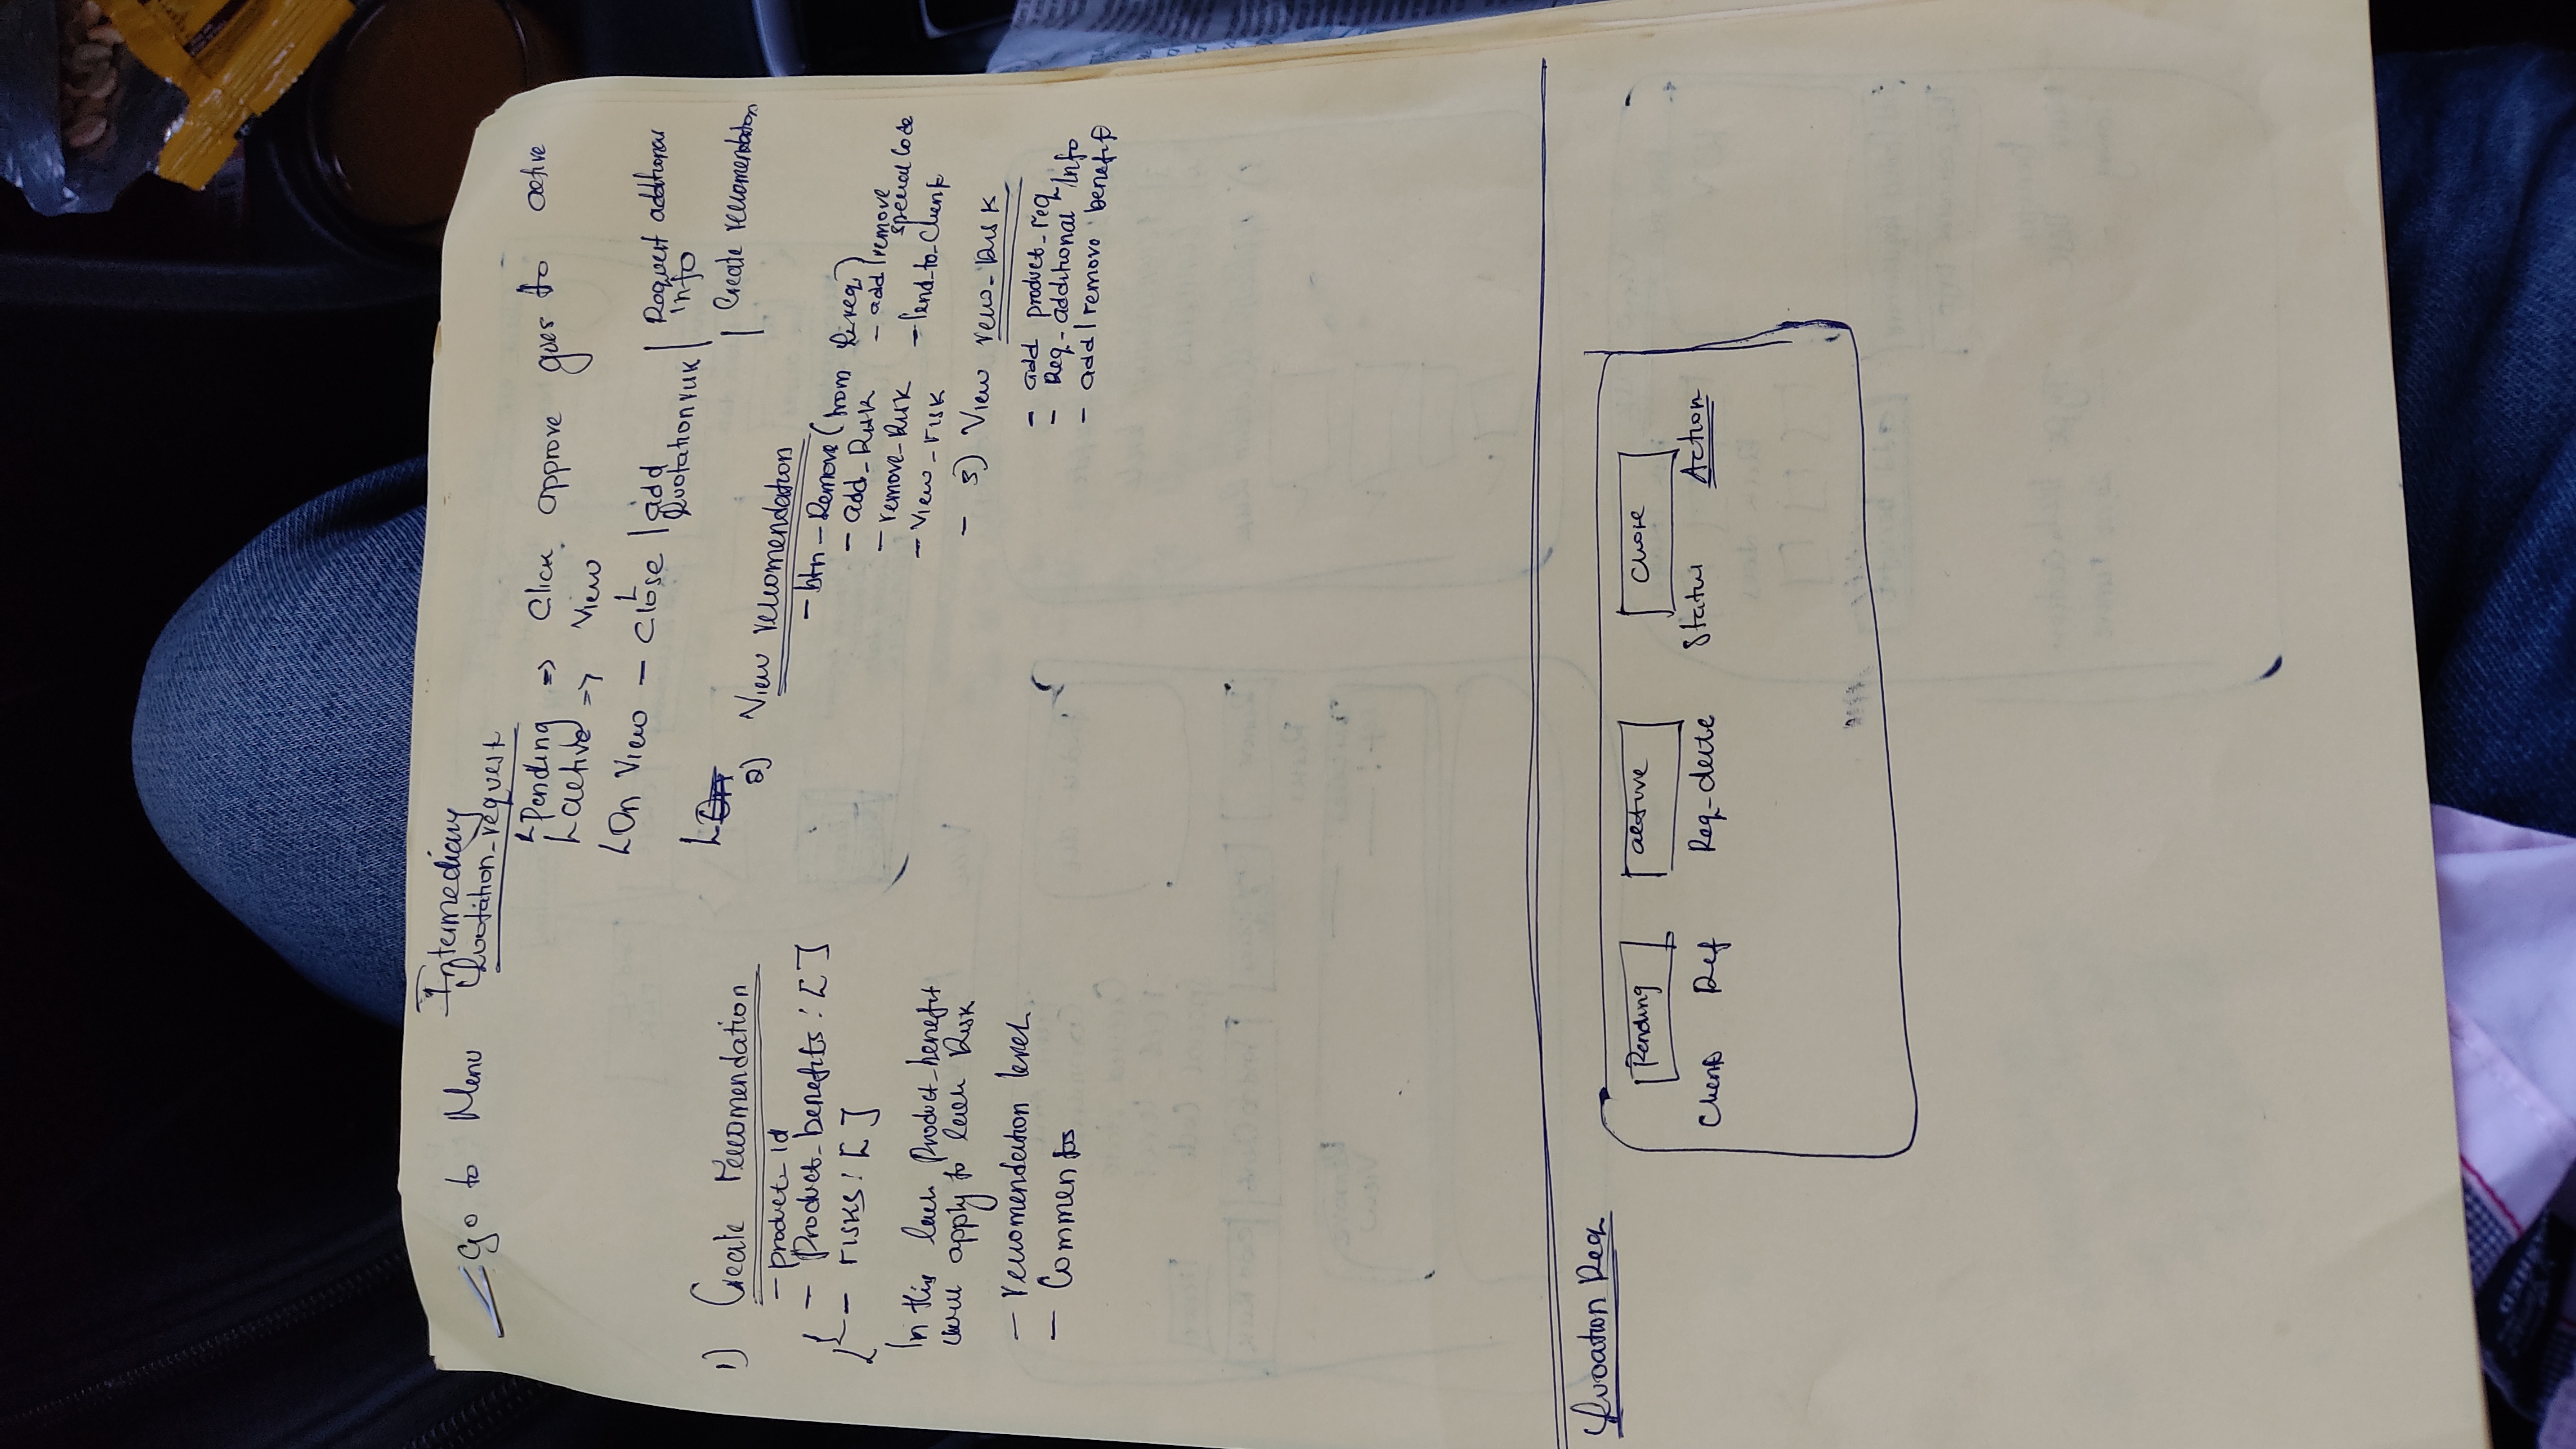 Intermediary
Go to Menu Quotation_request
Pending => Click approve goes to active
active => view
On View - Close | add Quotation risk | Request additional info
| Create recomendation
1) Create recomendation
- product_id
- Product_benefits: [ ]
{ - risks: [ ]
In this each Product_benefit
apply to each Risk
- recomendation level
- Comments
2) View recomendation
- btn - Remove (from
- add_Risk
- add/remove special code
- remove_Risk
- View_risk
- send_to_client
-
3) View recom_Risk
- add product_req
- Req_additional info
- add/remove benefit
Quotation Req
Pending active close
Client Ref Req_date Status Action